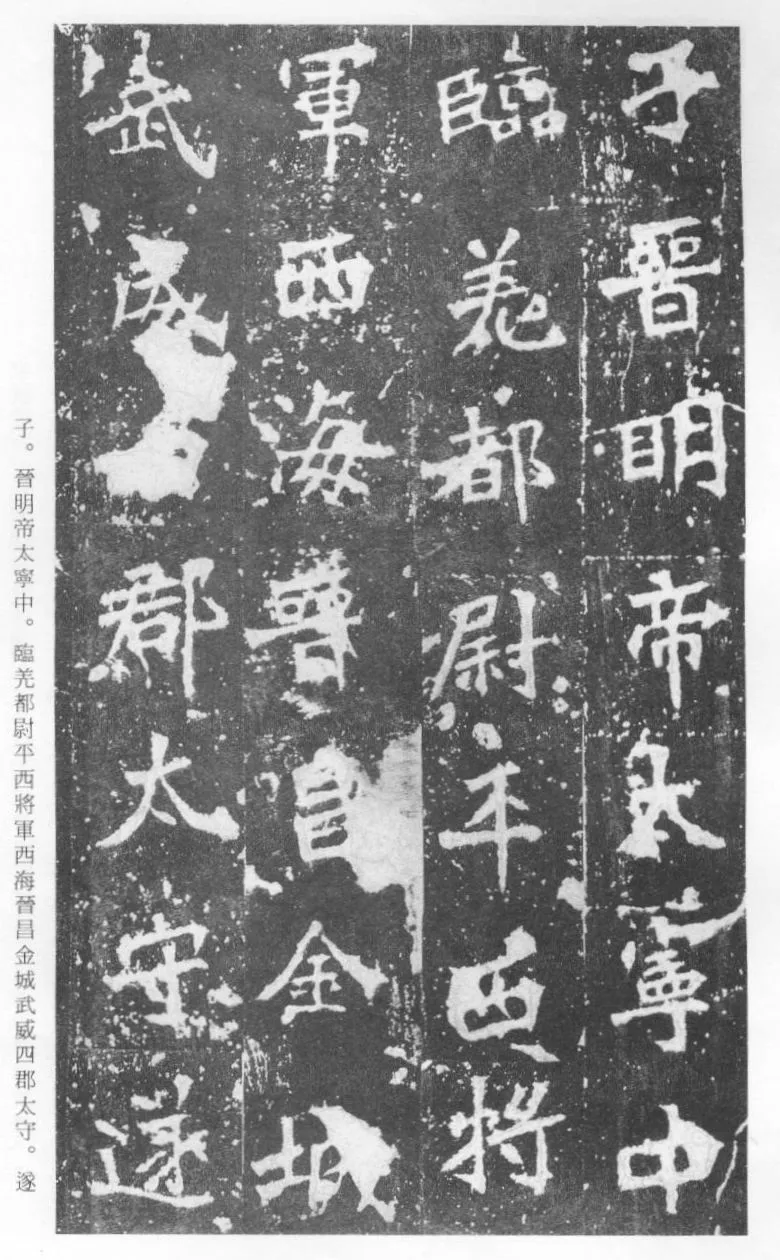 子晉明帝太寧中
臨羌都尉平西將
軍西海晉昌金城
武威四郡太守遂
子。晉明帝太寧中。臨羌都尉平西將軍西海晉昌金城武威四郡太守。遂